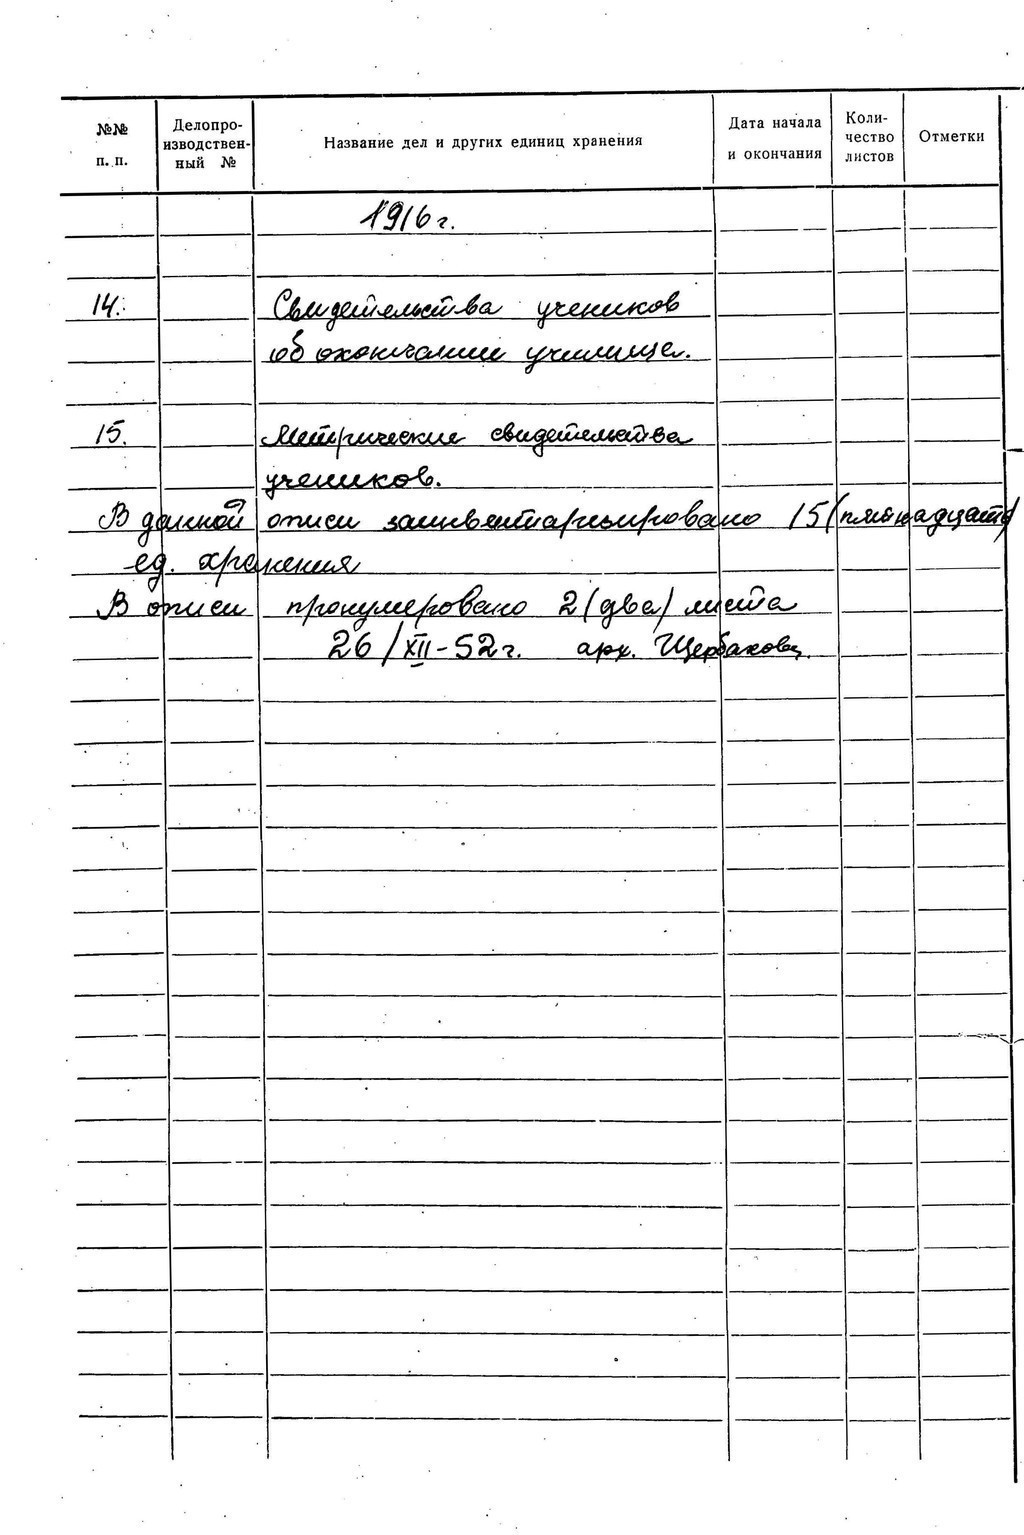 №№ п. п.
Делопро-
изводствен-
ный №
Название дел и других единиц хранения
Дата начала
и окончания
Коли-
чество
листов
Отметки
1916 г.
14. Свидетельства учеников
об окончании училища.
15. Метрические свидетельства
учеников.
В данной описи заинвентаризировано 15 (пятнадцать)
ед. хранения
В описи пронумеровано 2 (два) листа
26/XII-52 г. арх. Щербакова